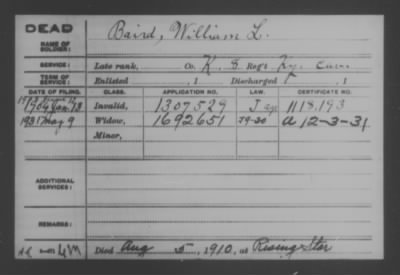 DEAD
NAME OF SOLDIER: Baird, William L.
SERVICE: Late rank, Co. K, 8 Reg't Ky. Cav.
TERM OF SERVICE: Enlisted , 1 Discharged , 1
DATE OF FILING. CLASS. APPLICATION NO. LAW. CERTIFICATE NO.
1904 Jan Invalid, 1307529 J 1118.193
1931 May 9 Widow, 1692651 A 12-3-31
Minor,
ADDITIONAL SERVICES:
REMARKS:
Died Aug 5, 1910, at Rising Star